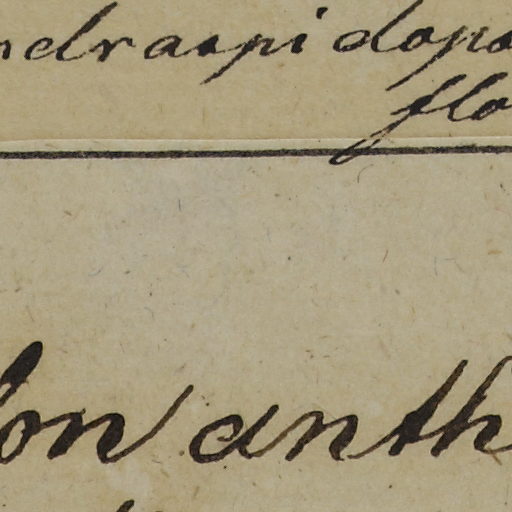 ndraspidopo
flo
lon anth